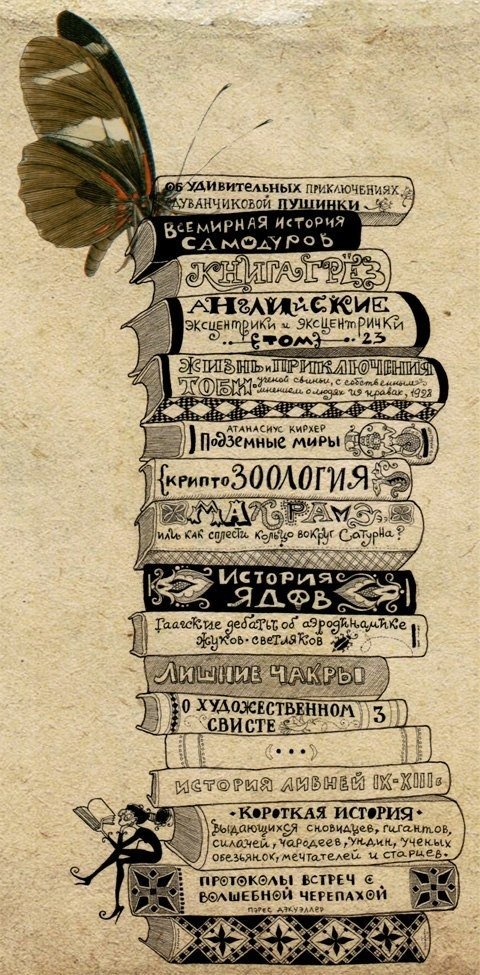 Об удивительных приключениях
одуванчиковой пушинки
Всемирная история
самодуров
Книга грёз
Английские
эксцентрики и эксцентрички
том 23
Жизнь и приключения
Тоби
ученой свиньи, с собственным
мнением о людях и нравах, 1998
Атанасиус Кирхер
Подземные миры
Крипто зоология
Макраме,
или как сплести кольцо вокруг Сатурна?
История
ядов
Гаагские дебаты об аэродинамике
жуков-светляков
Лишние чакры
О художественном
свисте
3
(...)
История ливней IX-XIII в
Короткая история
выдающихся сновидцев, гигантов,
силачей, чародеев, ундин, ученых
обезьянок, мечтателей и старцев.
Протоколы встреч с
волшебной черепахой